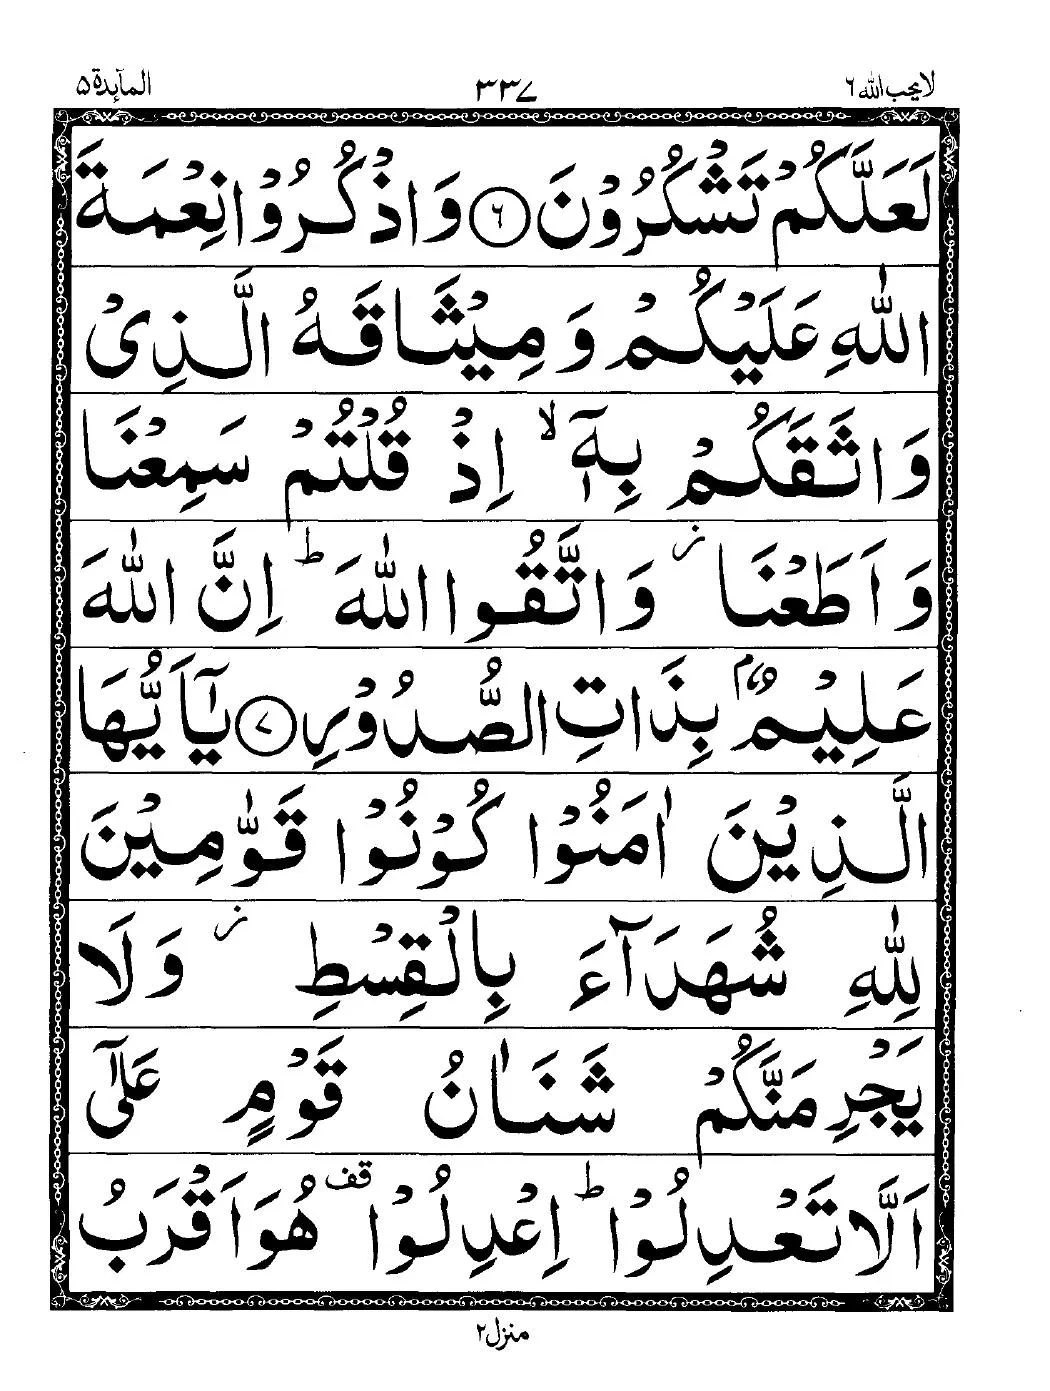 لا يحب الله ٦ ٣٣٧ المآئدة ۵
لَعَلَّكُمْ تَشْكُرُوْنَ ۝٦ وَاذْكُرُوْا نِعْمَةَ
اللّٰهِ عَلَيْكُمْ وَمِيْثَاقَهُ الَّذِىْ
وَاثَقَكُمْ بِهٖۤ ۙ اِذْ قُلْتُمْ سَمِعْنَا
وَاَطَعْنَا ز وَاتَّقُوا اللّٰهَ ؕ اِنَّ اللّٰهَ
عَلِيْمٌۢ بِذَاتِ الصُّدُوْرِ ۝٧ يٰۤاَيُّهَا
الَّذِيْنَ اٰمَنُوْا كُوْنُوْا قَوّٰمِيْنَ
لِلّٰهِ شُهَدَآءَ بِالْقِسْطِ ز وَلَا
يَجْرِمَنَّكُمْ شَنَاٰنُ قَوْمٍ عَلٰٓى
اَلَّا تَعْدِلُوْا ؕ اِعْدِلُوْا قف هُوَ اَقْرَبُ
منزل ٢